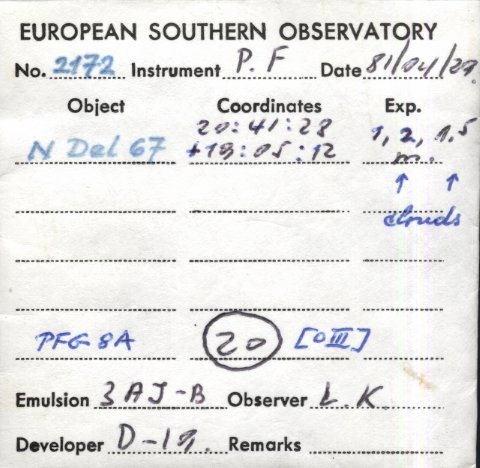 EUROPEAN SOUTHERN OBSERVATORY
No. 2172 Instrument P.F Date 81/04/27.
Object Coordinates Exp.
20:41:28 1, 2, 1,5
N Del 67 +19:05:12 m.
↑ ↑
clouds
PFG 8A 20 [OIII]
Emulsion 3AJ-B Observer L.K.
Developer D-19. Remarks